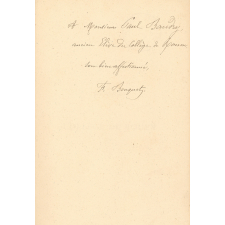 A Monsieur Paul Baudry
ancien Élève du Collège de Rouen
son bien affectionné
F. Bouquet